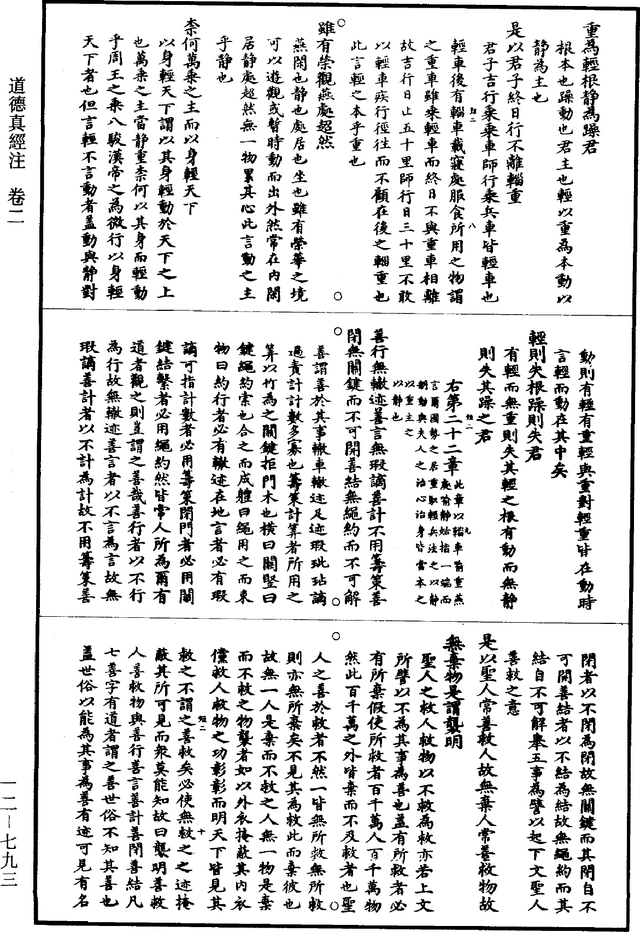 道德真經注 卷二
一二—七九三
重為輕根靜為躁君
根本也躁動也君主也輕以重為本動以
靜為主也
是以君子終日行不離輜重
君子吉行乘乘車師行乘兵車皆輕車也
輕車後有輜車載寢處服食所用之物謂
之重車雖乘輕車而終日不與重車相離
故吉行日止五十里師行日三十里不敢
以輕車疾行徑往而不顧在後之輜重也
此言輕之本乎重也
雖有榮觀燕處超然
燕閒也靜也處居也坐也雖有榮華之境
可以遊觀或暫時動而出外然常在內閒
居靜處超然無一物累其心此言動之主
乎靜也
柰何萬乘之主而以身輕天下
以身輕天下謂以其身輕動於天下之上
也萬乘之主當靜重柰何以其身而輕動
乎周王之乘八駿漢帝之為微行以身輕
天下者也但言輕不言動者蓋動與靜對
動則有輕有重輕與重對輕重皆在動時
言輕而動在其中矣
輕則失根躁則失君
有輕而無重則失其輕之根有動而無靜
則失其躁之君
右第二十二章
善行無轍迹善言無瑕讁善計不用籌筭善
閉無關鍵而不可開善結無繩約而不可解
善謂善於其事轍車轍迹足迹瑕玭玷讁
過責計計數多寡也籌筭計算者所用之
算以竹為之關鍵拒門木也橫曰關豎曰
鍵繩約索也合之而成體曰繩用之而束
物曰約行者必有轍迹在地言者必有瑕
讁可指計數者必用籌筭閉門者必用關
鍵結繫者必用繩約然皆常人所為爾有
道者觀之則豈謂之善哉善行者以不行
為行故無轍迹善言者以不言為言故無
瑕讁善計者以不計為計故不用籌筭善
閉者以不閉為閉故無關鍵而其閉自不
可開善結者以不結為結故無繩約而其
結自不可解舉五事為譬以起下文聖人
善救之意
是以聖人常善救人故無棄人常善救物故
無棄物是謂襲明
聖人之救人救物以不救為救亦若上文
所譬以不為其事為善也蓋有所救者必
有所棄假使所救者百千萬人百千萬物
然此百千萬之外皆棄而不及救者也聖
人之善於救者不然一皆無所救無所救
則亦無所棄矣不見其為救此而棄彼也
故無一人是棄而不救之人無一物是棄
而不救之物襲者如以外衣掩蔽其內衣
儻救人救物之功彰彰而明天下皆見其
救之不謂之善救矣必使無救之之迹掩
蔽其所可見而衆莫能知故曰襲明善救
人善救物與善行善言善計善閉善結凡
七善字有道者謂之善世俗不知其善也
蓋世俗以能為其事為善有迹可見有名